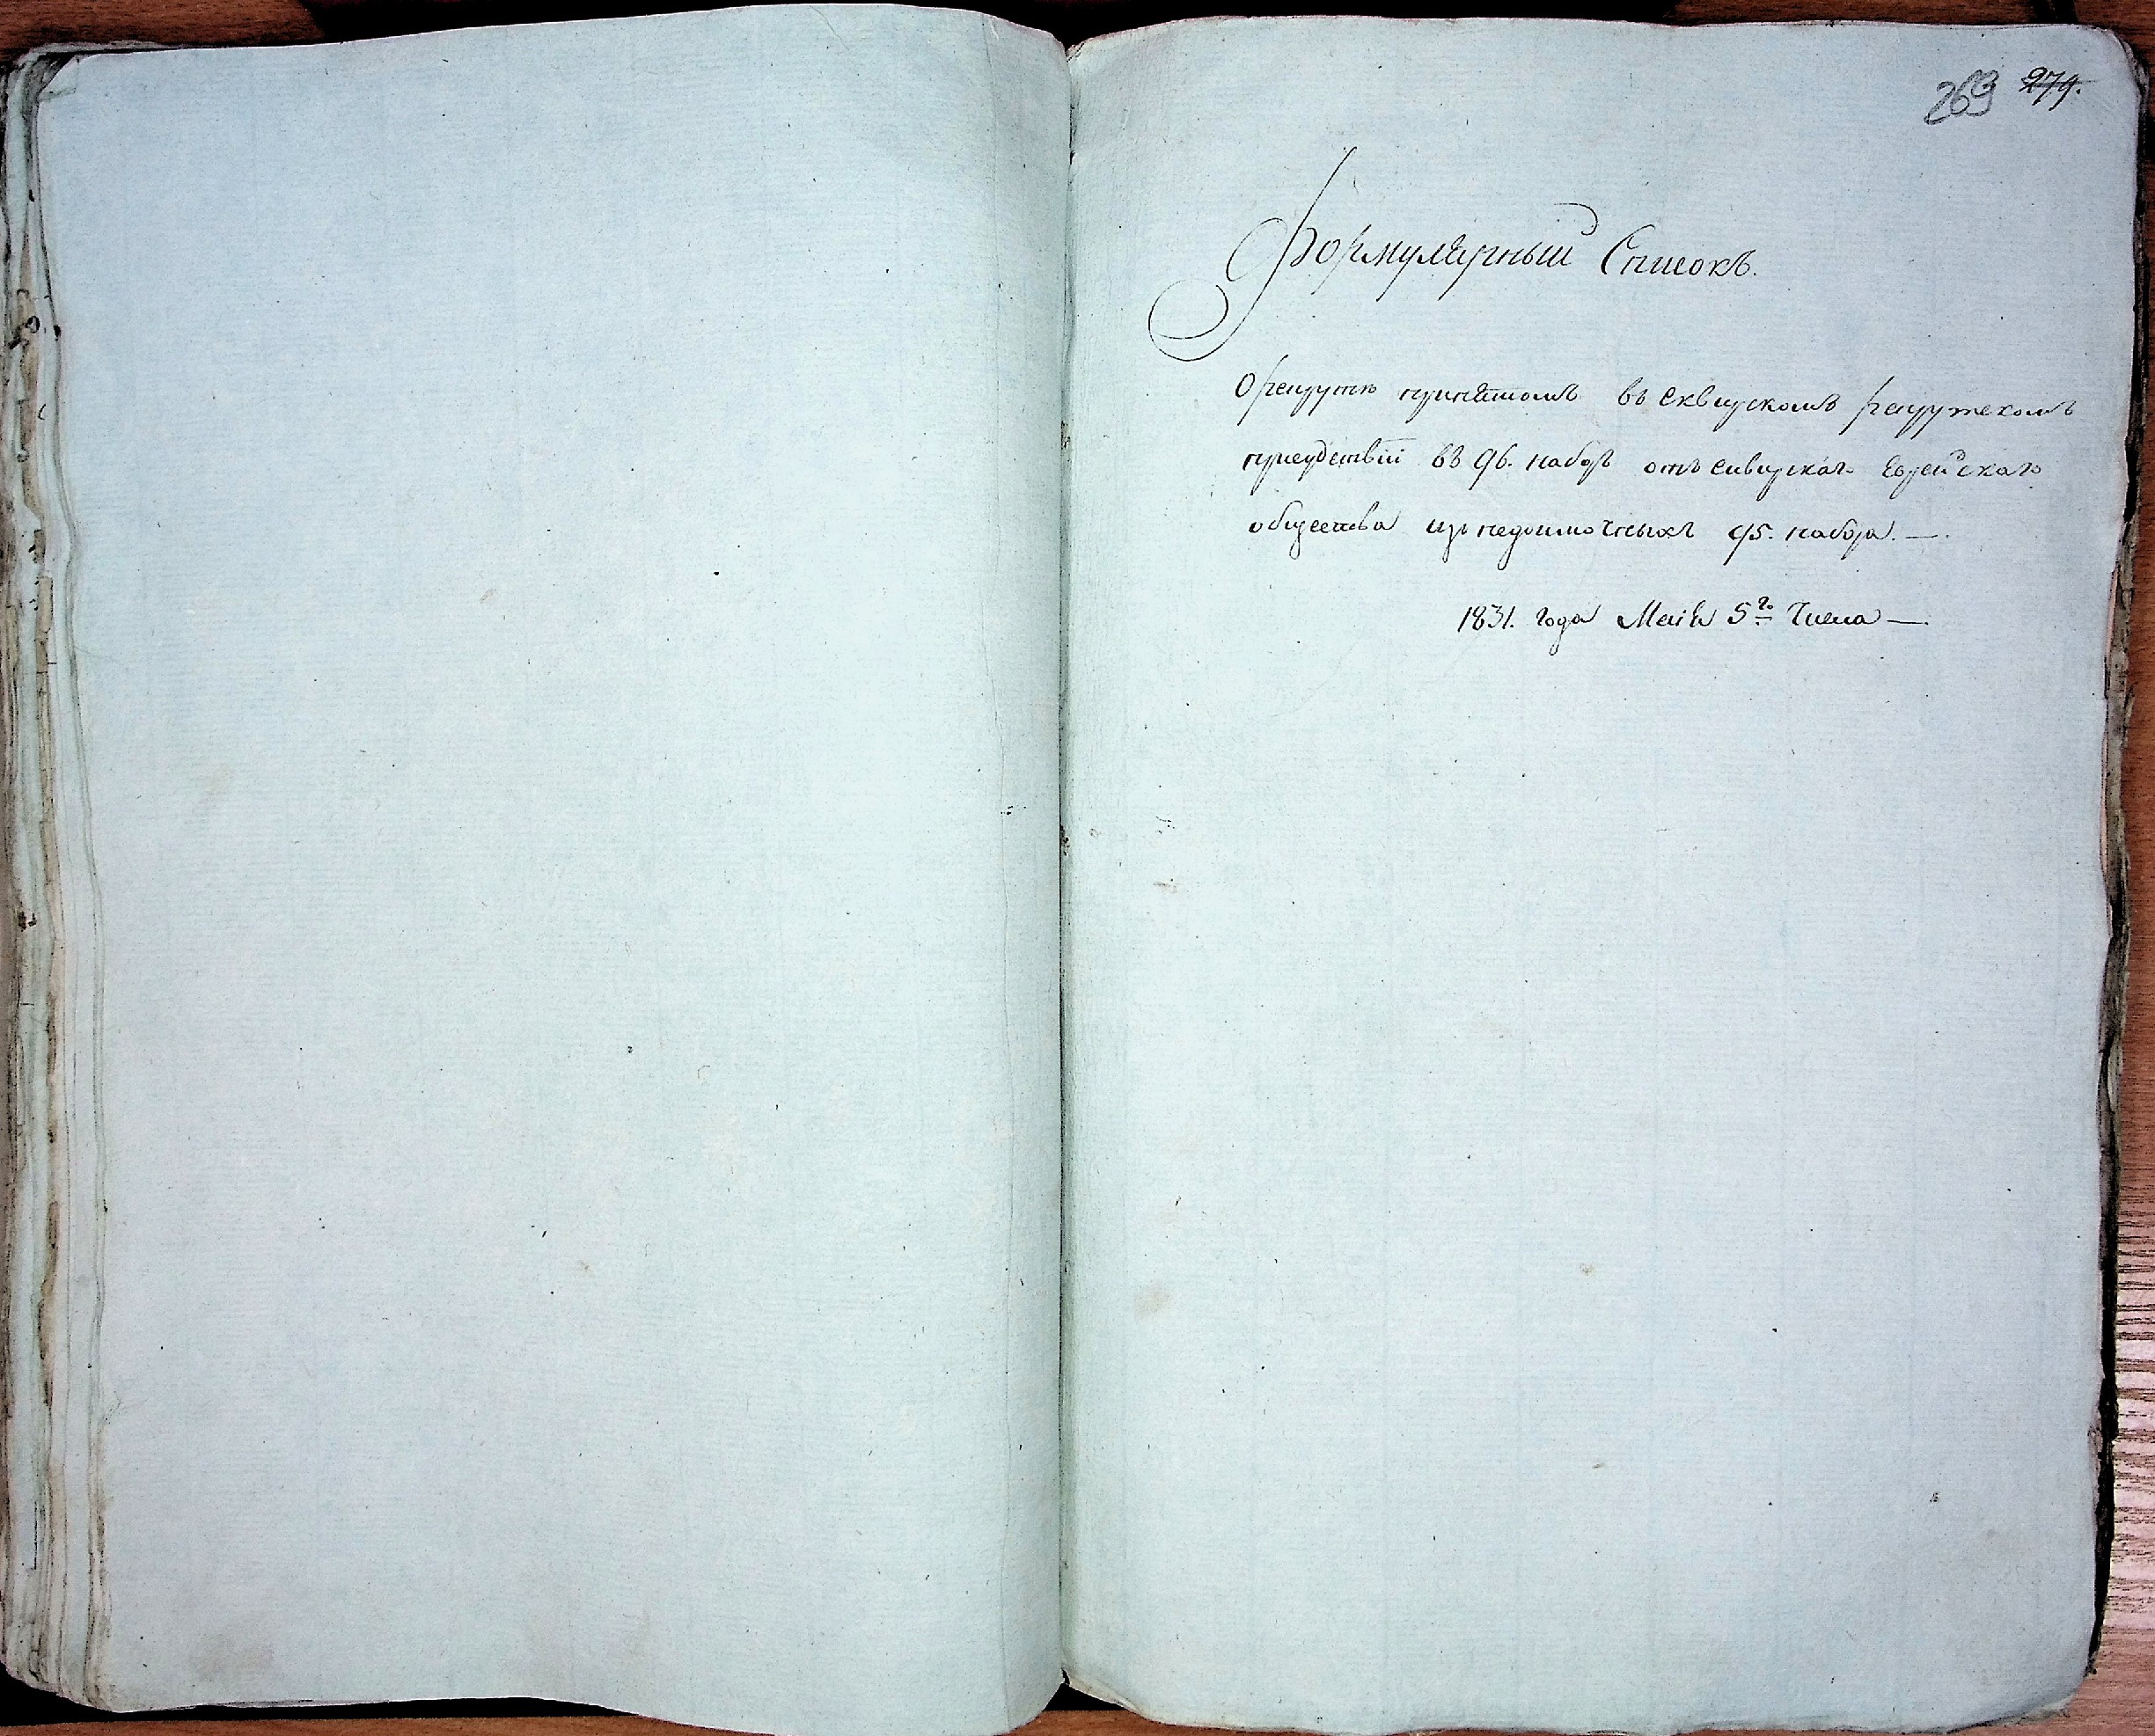 269 279.
Формулярный Списокъ.
О рекрутѣ принятомъ въ Сквирскомъ рекрутскомъ
присудствіи въ 96. наборъ отъ Сквирскаго Еврейскаго
общества изъ недоимочныхъ 95. набора. —.
1831. года Маія 5го Числа —.